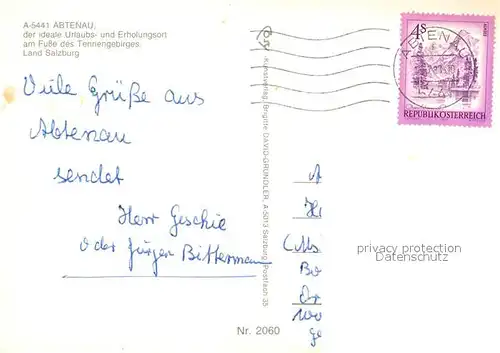 A-5441 ABTENAU,
der ideale Urlaubs- und Erholungsort
am Fuße des Tennengebirges.
Land Salzburg
Viele Grüße aus
Abtenau
sendet
Herr Geschie
oder Jürgen Bitterman
Kunstverlag Brigitte DAVID-GRÜNDLER, A-5013 Salzburg, Postfach 35
Nr. 2060
4s
REPUBLIK ÖSTERREICH
ABTENAU
privacy protection
Datenschutz